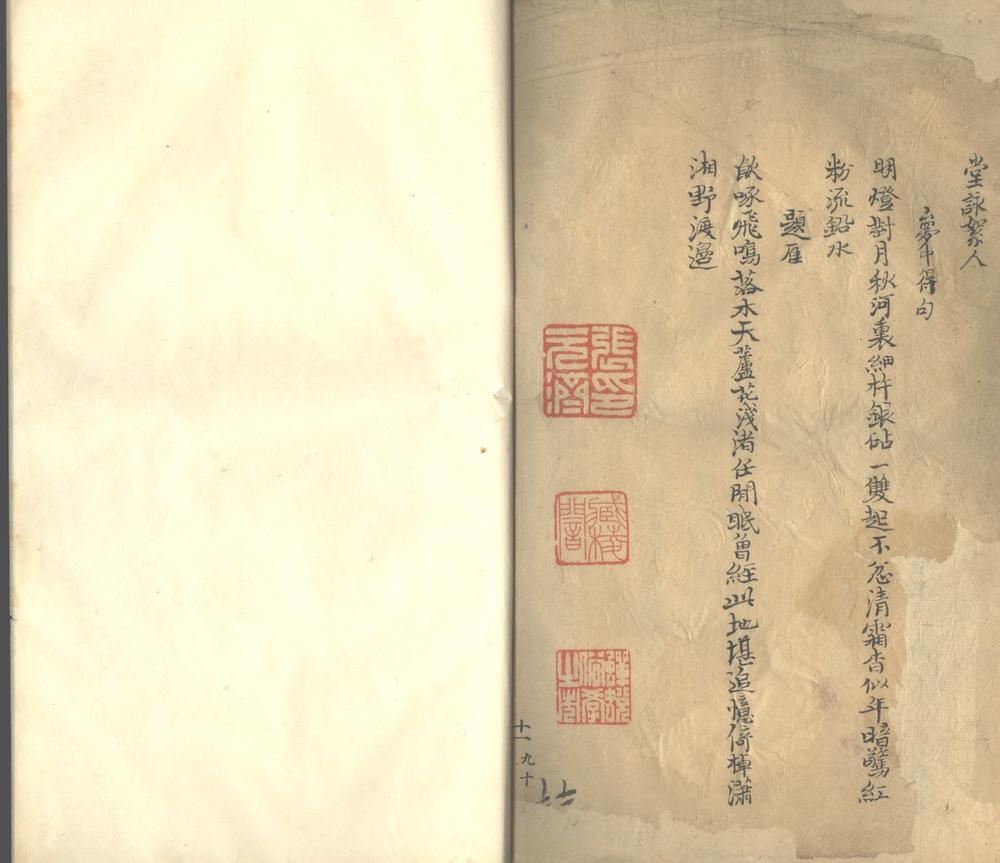 堂詠絮人
夢中得句
明燈對月秋河裏細杵銀砧一雙起不忿清霜杳似年暗驚紅
粉流鉛水
題雁
飲啄飛鳴落木天蘆花淺渚任閒眠曾經此地堪追憶倚棹瀟
湘野渡邊
張印
元濟
十一
九十